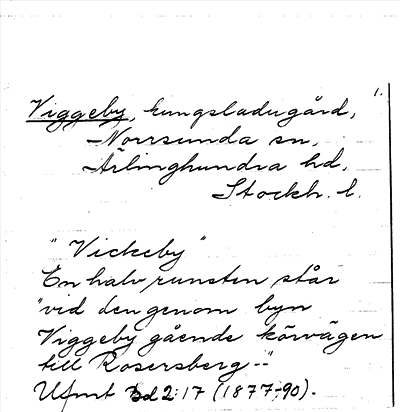 1.
Viggeby, kungsladugård,
Norrsunda sn,
Ärlinghundra hd,
Stockh. l.
"Vickeby"
En halv runsten står
"vid den genom byn
Viggeby gående körvägen
till Rosersberg--"
Ufmt Bd 2:17 (1877-90).